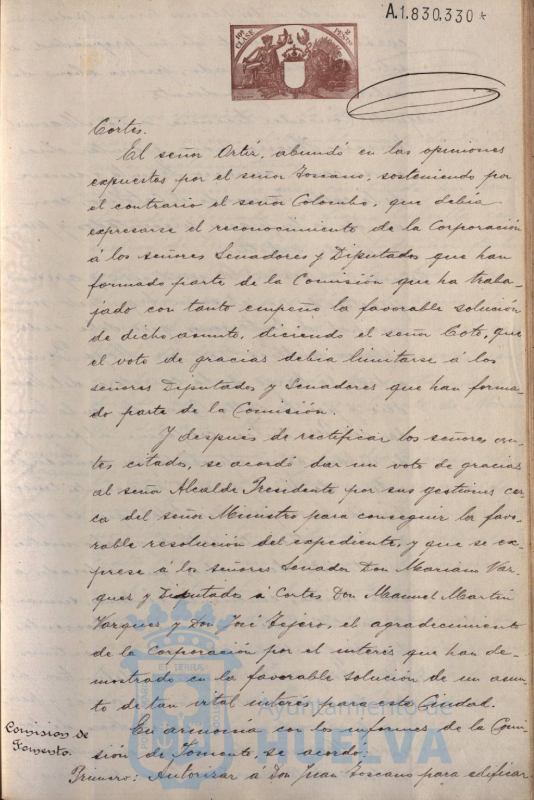 A.1.830.330*
10ª CLASE
2 PESETAS
Córtes.
El señor Ortíz, abundó en las opiniones
expuestas por el señor Toscano, sosteniendo por
el contrario el señor Colombo, que debia
expresarse el reconocimiento de la Corporación
á los señores Senadores y Diputados que han
formado parte de la Comisión que ha traba-
jado con tanto empeño la favorable solución
de dicho asunto, diciendo el señor Coto, que
el voto de gracias debia limitarse á los
señores Diputados y Senadores que han forma-
do parte de la Comisión.
Y después de rectificar los señores an-
tes citados, se acordó dar un voto de gracias
al señor Alcalde Presidente por sus gestiones cer-
ca del señor Ministro para conseguir la favo-
rable resolución del expediente, y que se ex-
prese á los señores Senador Don Mariano Vaz-
quez y Diputados á Cortes Don Manuel Martin
Vazquez y Don José Tejero, el agradecimiento
de la Corporación por el interés que han de-
mostrado en la favorable solución de un asun-
to de tan vital interés para esta Ciudad.
Comision de
Fomento.
En armonía con los informes de la Comi-
sión de Fomento, se acordó:
Primero: Autorizar á Don Juan Toscano para edificar
Ayuntamiento de
HUELVA